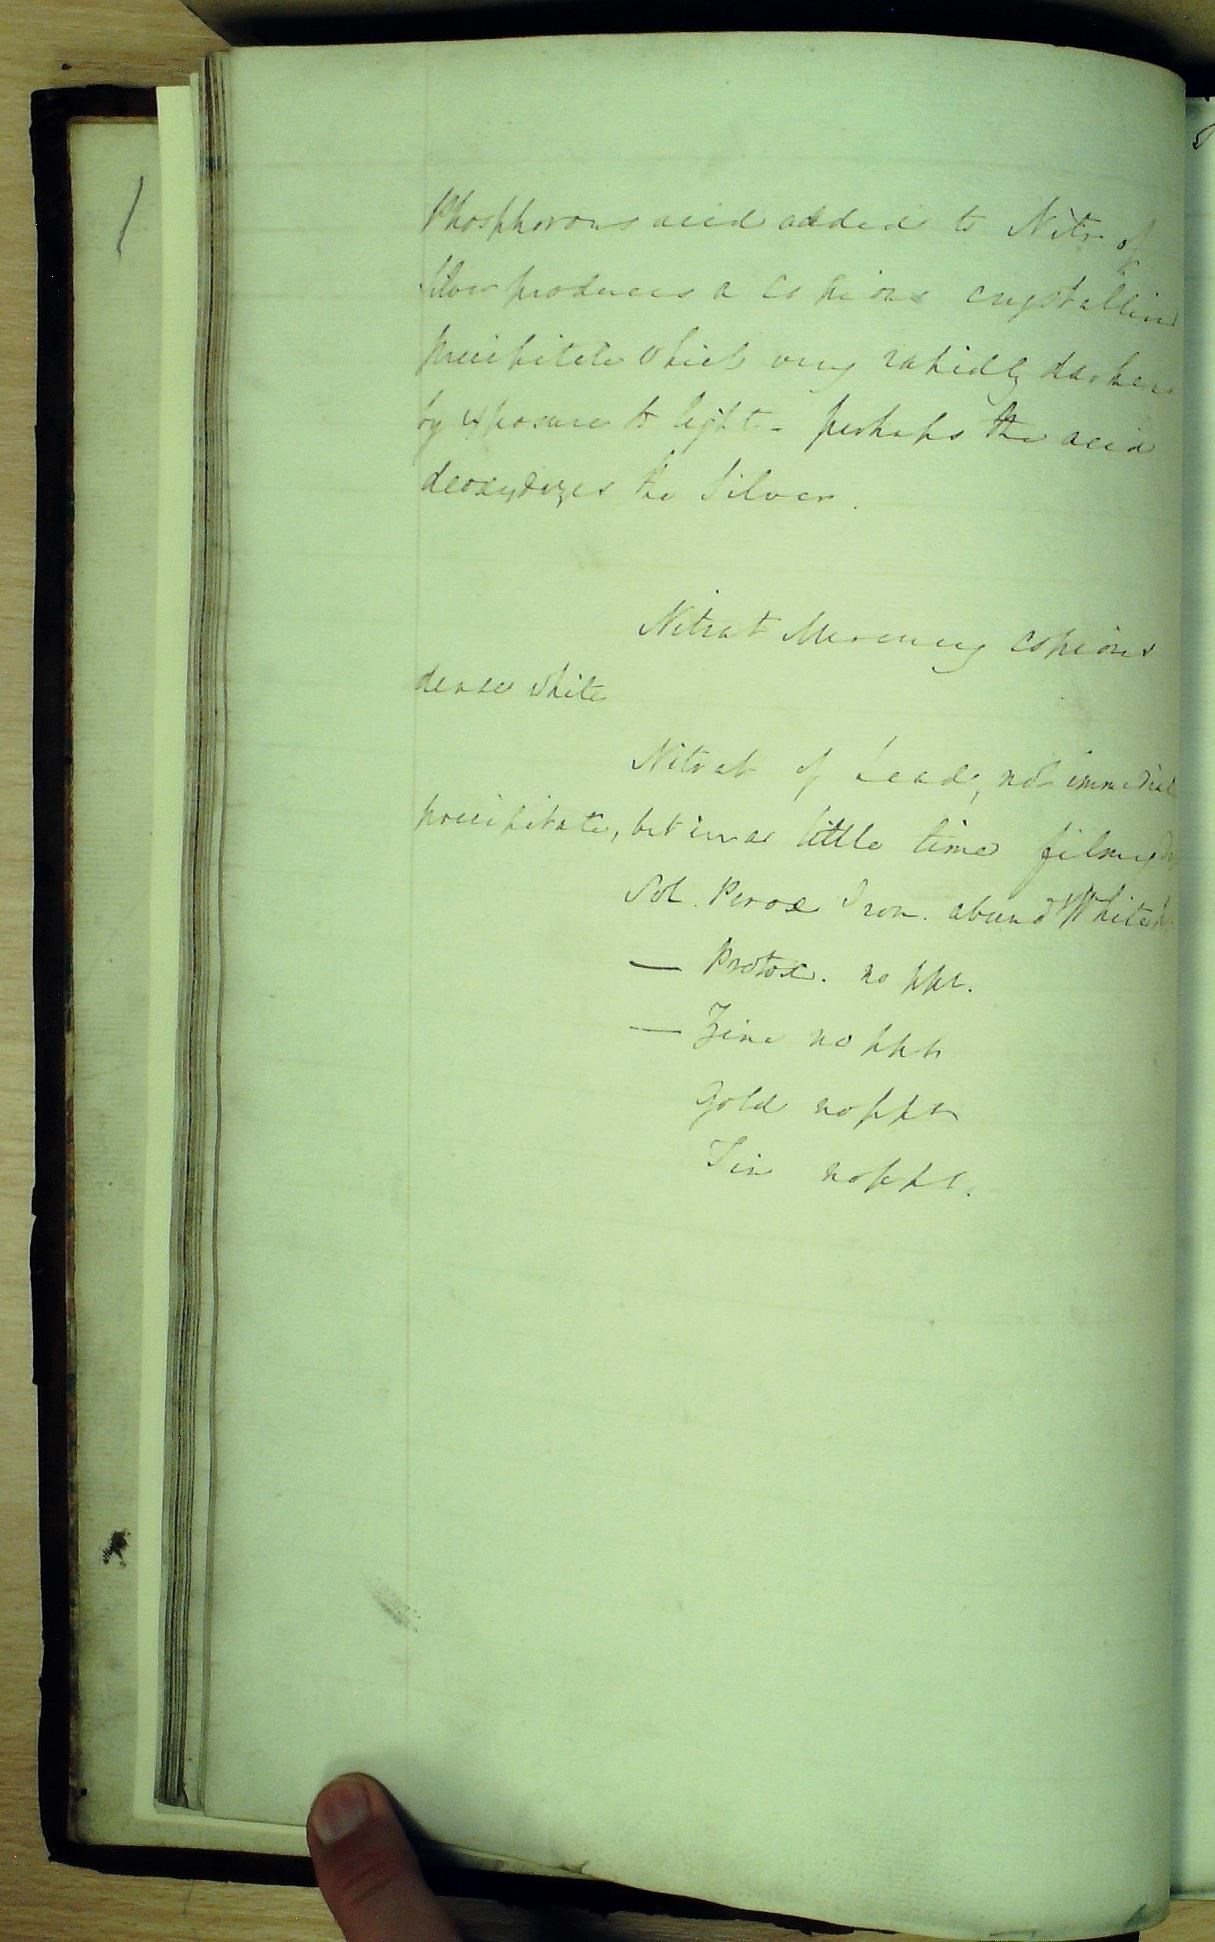 Phosphorous acid added to Nitr of
Silver produces a copious crystalline
precipitate which very rapidly darkens
by exposure to light - perhaps the acid
deoxydizes the Silver.
Nitrat Mercury copious
dense white
Nitrat of Lead, not immediate
precipitate, but in a little time filmy
Sol. Perox Iron. abund White
— Protox. no ppt.
— Zinc no ppt
Gold no ppt
Tin no ppt.